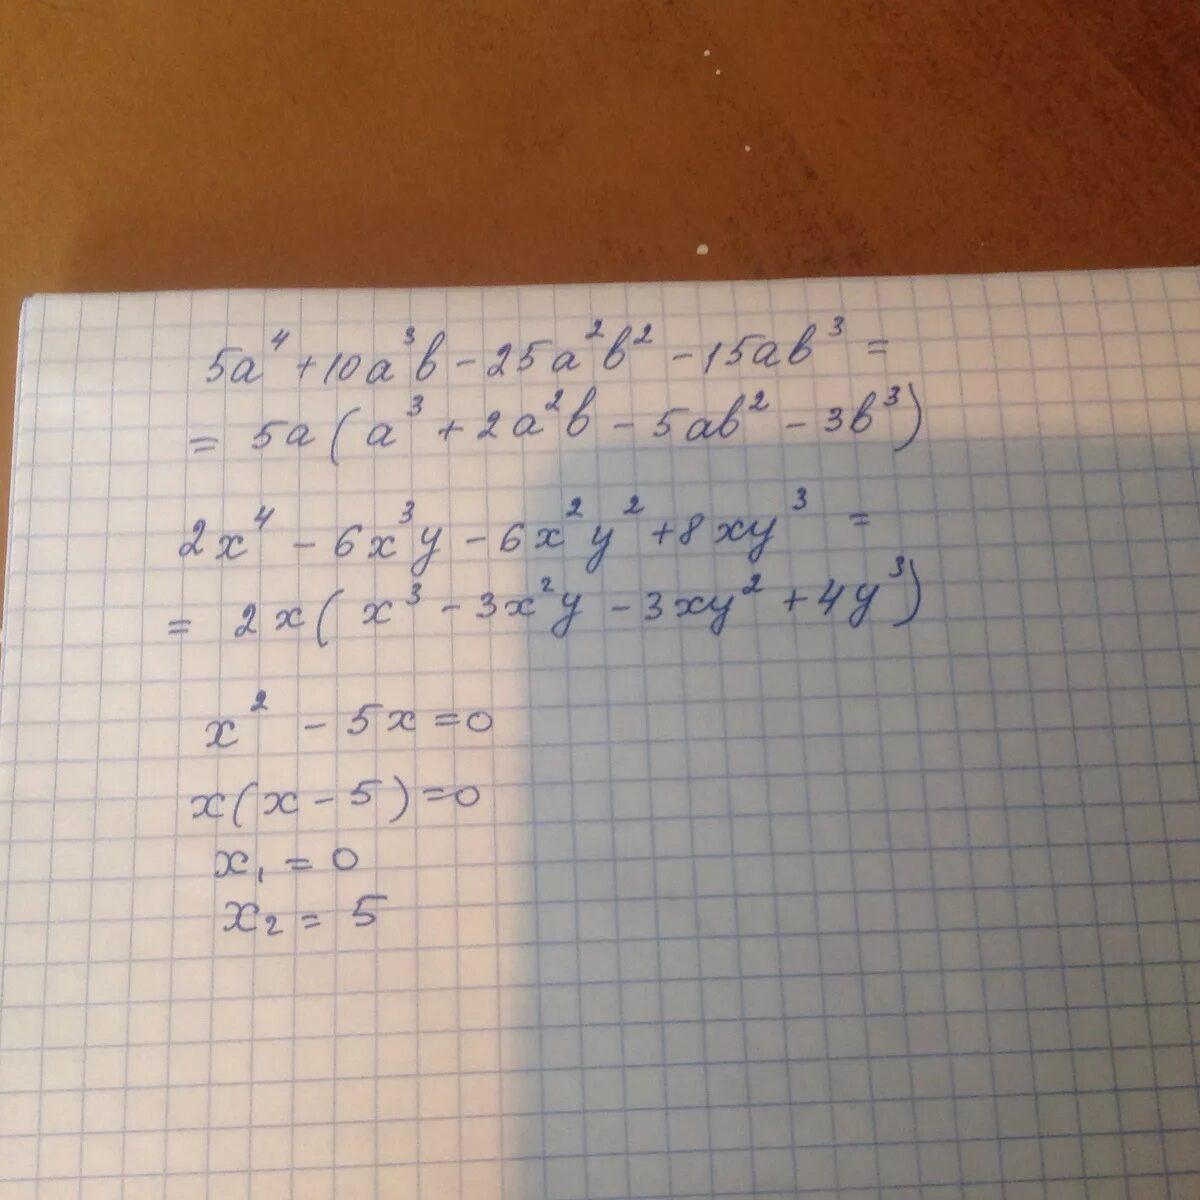 5a⁴ + 10a³b - 25a²b² - 15ab³ =
= 5a(a³ + 2a²b - 5ab² - 3b³)
2x⁴ - 6x³y - 6x²y² + 8xy³ =
= 2x(x³ - 3x²y - 3xy² + 4y³)
x² - 5x = 0
x(x - 5) = 0
x₁ = 0
x₂ = 5